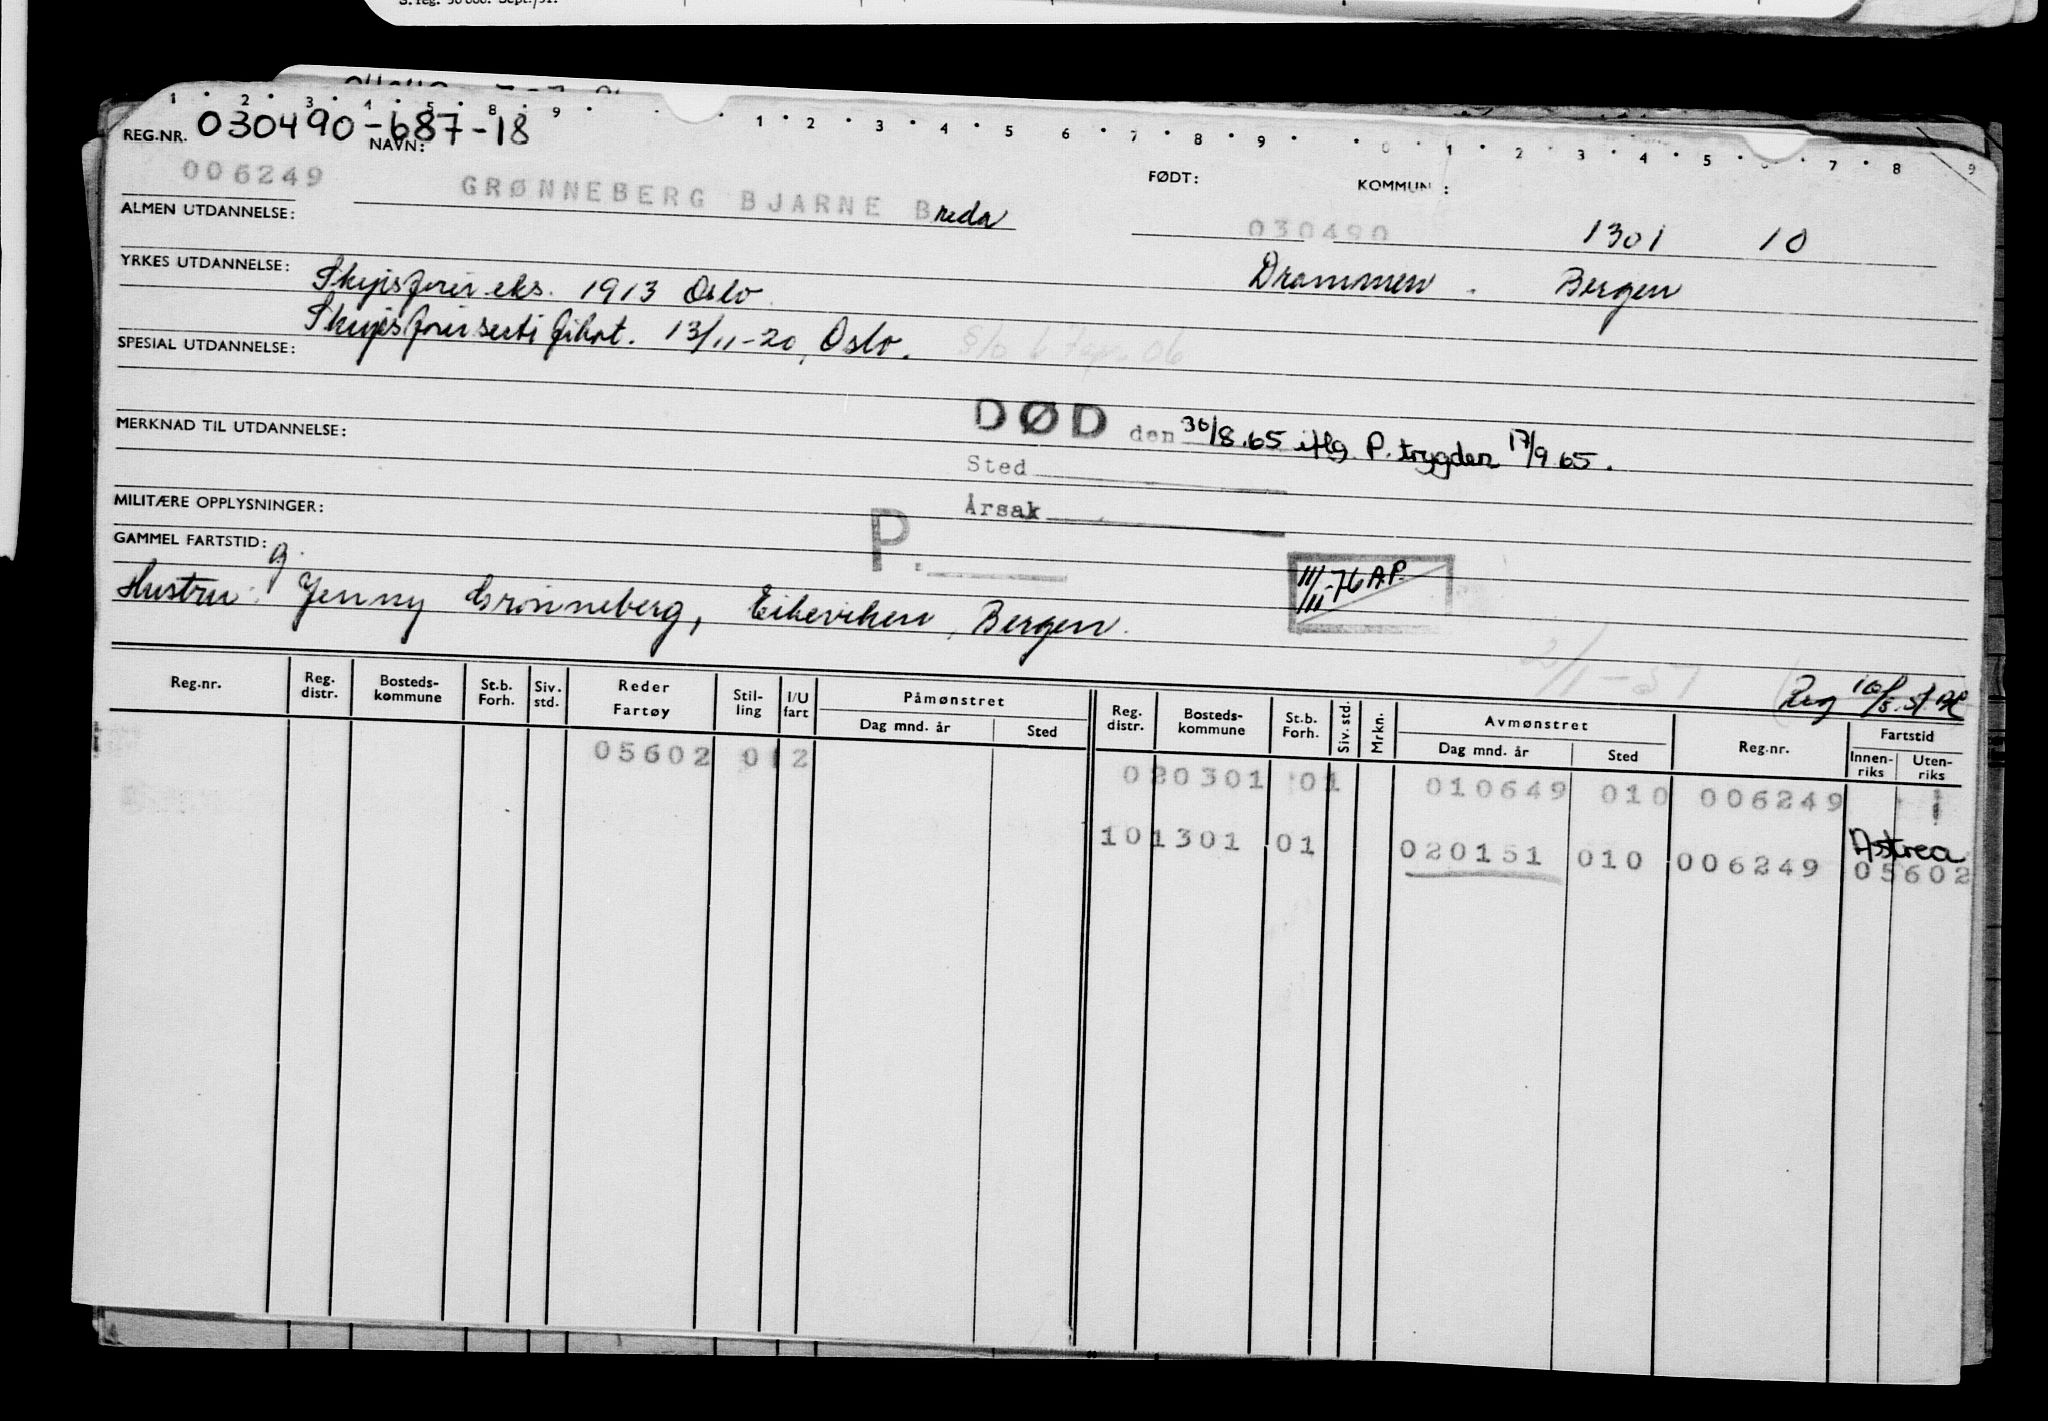 S. reg. 50 000. Sept./51.
1 2 3 4 5 8 9 1 2 3 4 5 6 7 8 9 0 1 2 3 4 5 7 8 9
REG.NR. 030490-687-18
NAVN: FØDT: KOMMUN :
006249 GRØNNEBERG BJARNE Breda 030490 1301 10
ALMEN UTDANNELSE:
Drammen. Bergen
YRKES UTDANNELSE: Skipsfører eks. 1913 Oslo.
Skipsførersertifikat. 13/11-20, Oslo.
SPESIAL UTDANNELSE:
DØD den 30/8.65 iflg. P. trygden 17/9 65.
MERKNAD TIL UTDANNELSE:
Sted
Årsak
MILITÆRE OPPLYSNINGER:
P.
GAMMEL FARTSTID: g.
III/11-76 A.P.
Hustru: Jenny Grønneberg, Eikeviken, Bergen.
Reg.nr. Reg. distr. Bosteds-kommune St.b. Forh. Siv. std. Reder Fartøy Stil-ling I/U fart Påmønstret Dag mnd. år Sted Reg. distr. Bosteds-kommune St.b. Forh. Siv. std. Mrkn. Avmønstret Dag mnd. år Sted Reg.nr. Fartstid Innen-riks Uten-riks
05602 01 2 020301 01 010649 010 006249
101301 01 020151 010 006249 Astrea 05602